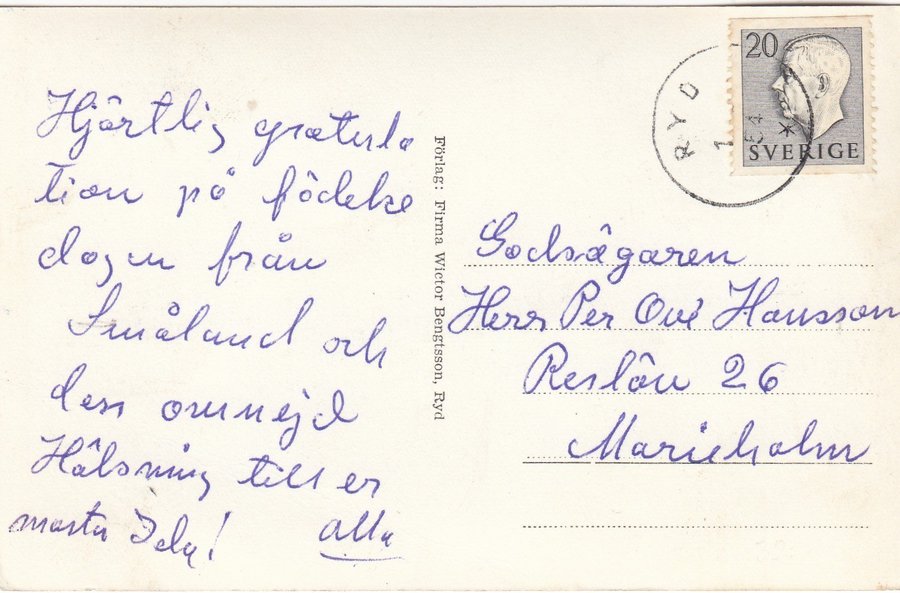 Hjärtlig gratula
tion på födelse
dagen från
Småland och
dess omnejd
Hälsning till er
alla
Förlag: Firma Wictor Bengtsson, Ryd
RYD
20
SVERIGE
Godsägaren
Herr Per Ove Hansson
Reslöv 26
Marieholm